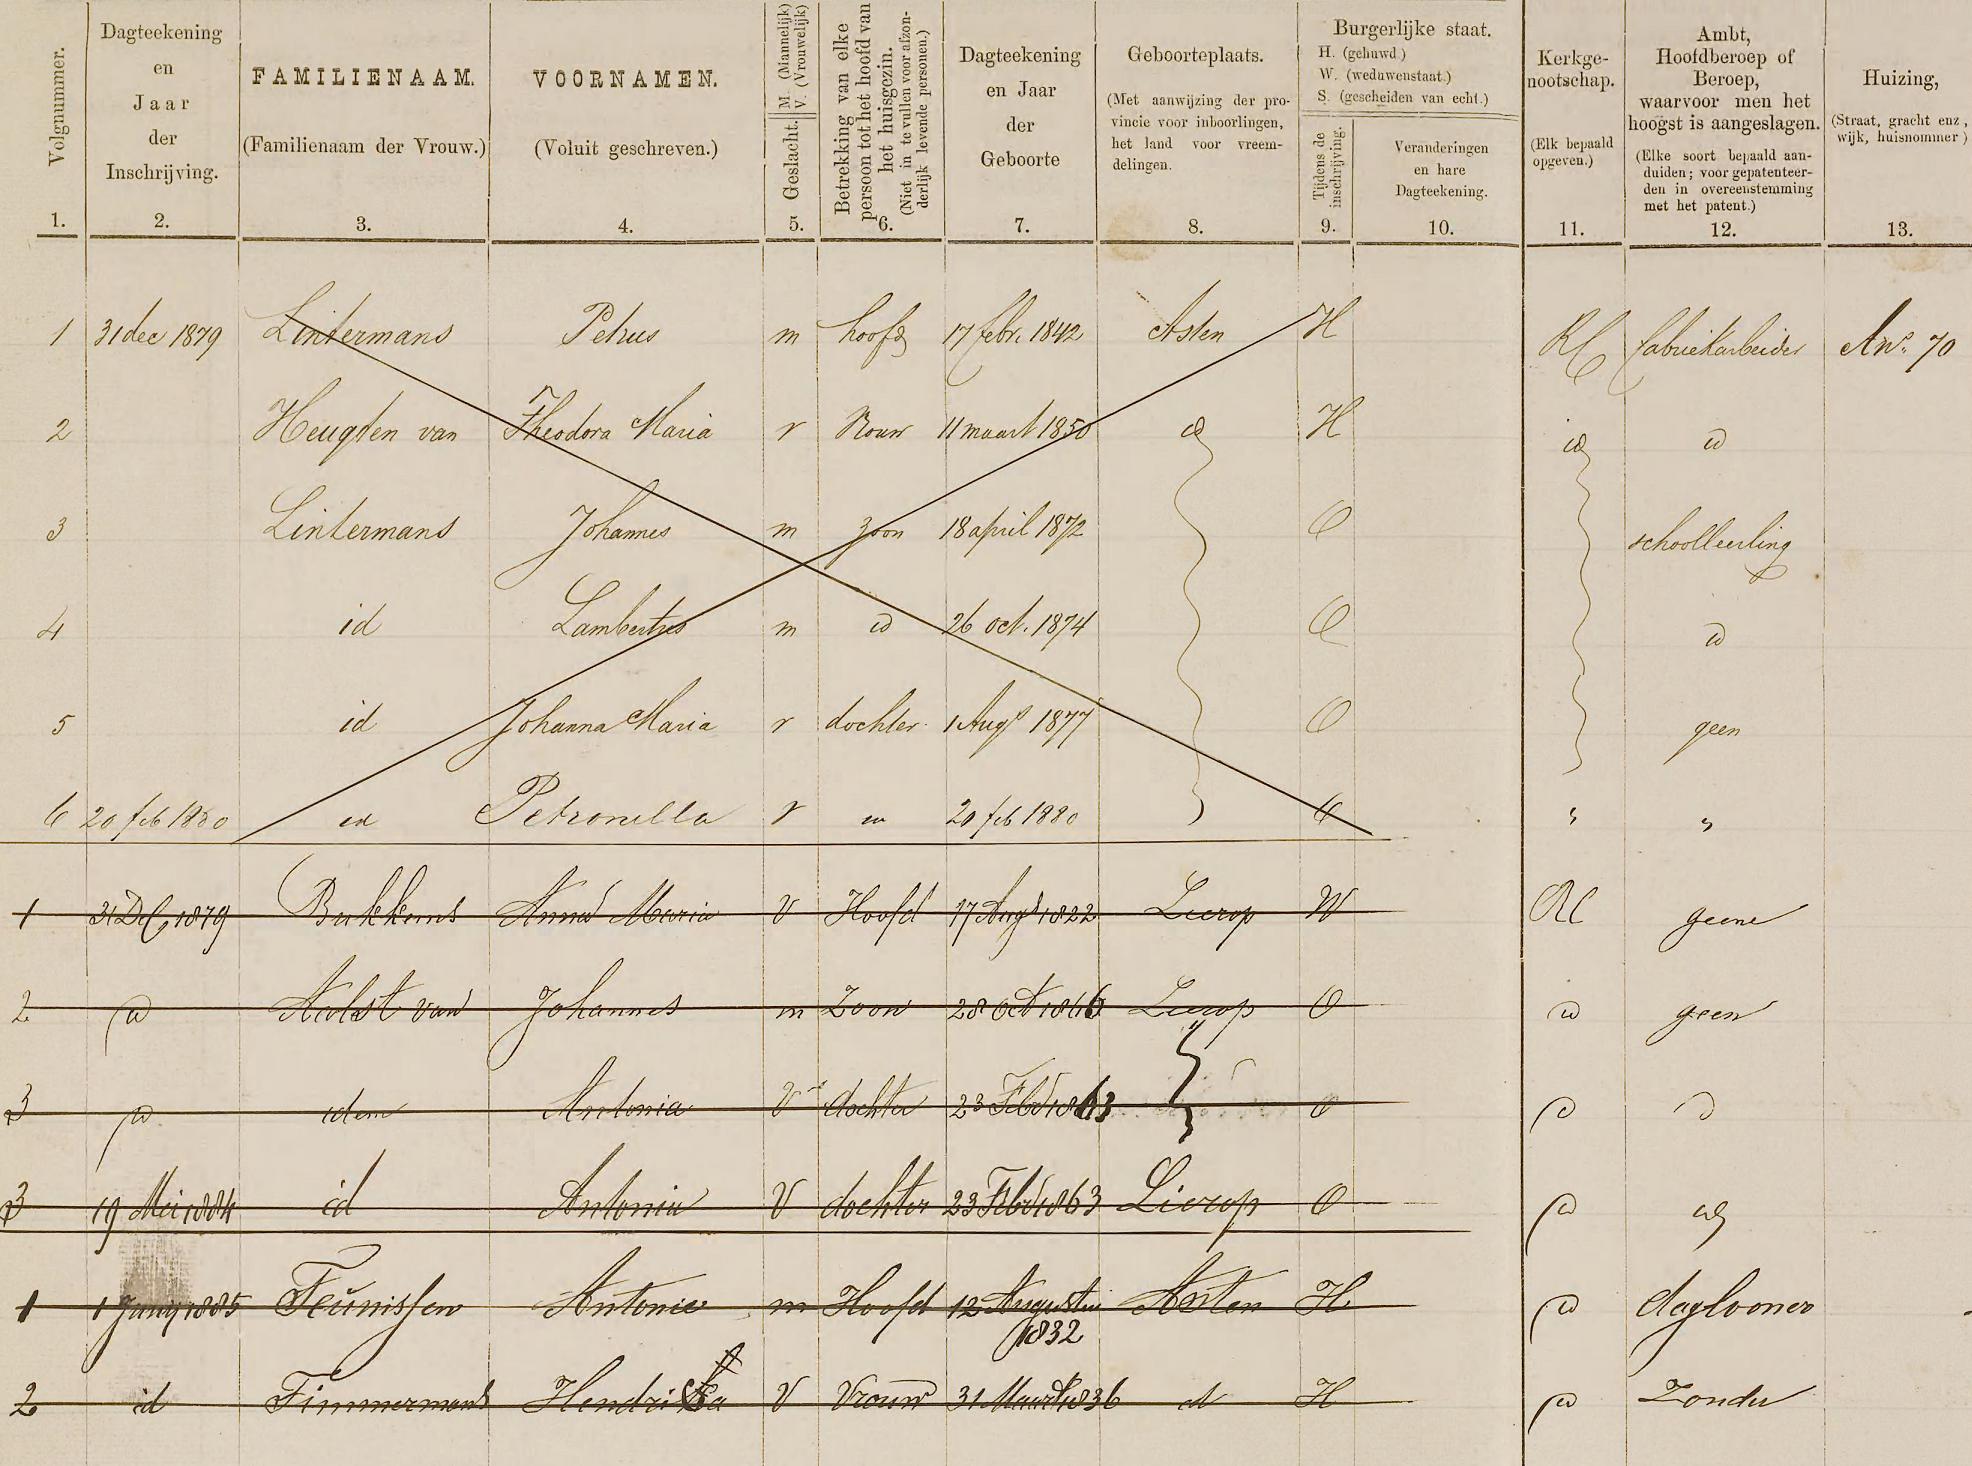 Volgnummer.
1.
Dagteekening
en
Jaar
der
Inschrijving.
2.
FAMILIENAAM.
(Familienaam der Vrouw.)
3.
VOORNAMEN.
(Voluit geschreven.)
4.
Geslacht. M. (Mannelijk)
V. (Vrouwelijk)
5.
Betrekking van elke
persoon tot het hoofd van
het huisgezin.
(Niet in te vullen voor afzon-
derlijk levende personen.)
6.
Dagteekening
en Jaar
der
Geboorte
7.
Geboorteplaats.
(Met aanwijzing der pro-
vincie voor inboorlingen,
het land voor vreem-
delingen.
8.
Burgerlijke staat.
H. (gehuwd.)
W. (weduwenstaat.)
S. (gescheiden van echt.)
Tijdens de
inschrijving.
9.
Veranderingen
en hare
Dagteekening.
10.
Kerkge-
nootschap.
(Elk bepaald
opgeven.)
11.
Ambt,
Hoofdberoep of
Beroep,
waarvoor men het
hoogst is aangeslagen.
(Elke soort bepaald aan-
duiden; voor gepatenteer-
den in overeenstemming
met het patent.)
12.
Huizing,
(Straat, gracht enz,
wijk, huisnommer)
13.
1 31 dec 1879 Lintermans Petrus m hoofd 17 febr. 1842 Asten H RC fabriekarbeider 70
2 Heugten van Theodora Maria v Vrouw 11 maart 1850 id H id id
3 Lintermans Johannes m zoon 18 april 1872 O schoolleerling
4 id Lambertus m id 26 oct. 1874 O id
5 id Johanna Maria v dochter 1 Augs 1877 O geen
6 20 feb 1880 en Petronella v en 20 feb 1880 O " "
1 31 Dec 1879 Bukkems Anna Maria V Hoofd 17 Augs 1822 Lierop W RC geene
2 id Aalst van Johannes m Zoon 28 Oct 1866 Lierop O id geen
3 id idem Antonia V dochter 23 Feb 1863 O id id
3 19 Mei 1884 id Antonia V dochter 23 Feb 1863 Lierop O id id
1 1 Junij 1885 Teunissen Antonie m Hoofd 12 Augustus Asten H id daglooner
1832
2 id Timmermans Hendrika V Vrouw 31 Maart 1836 id H id Zonder